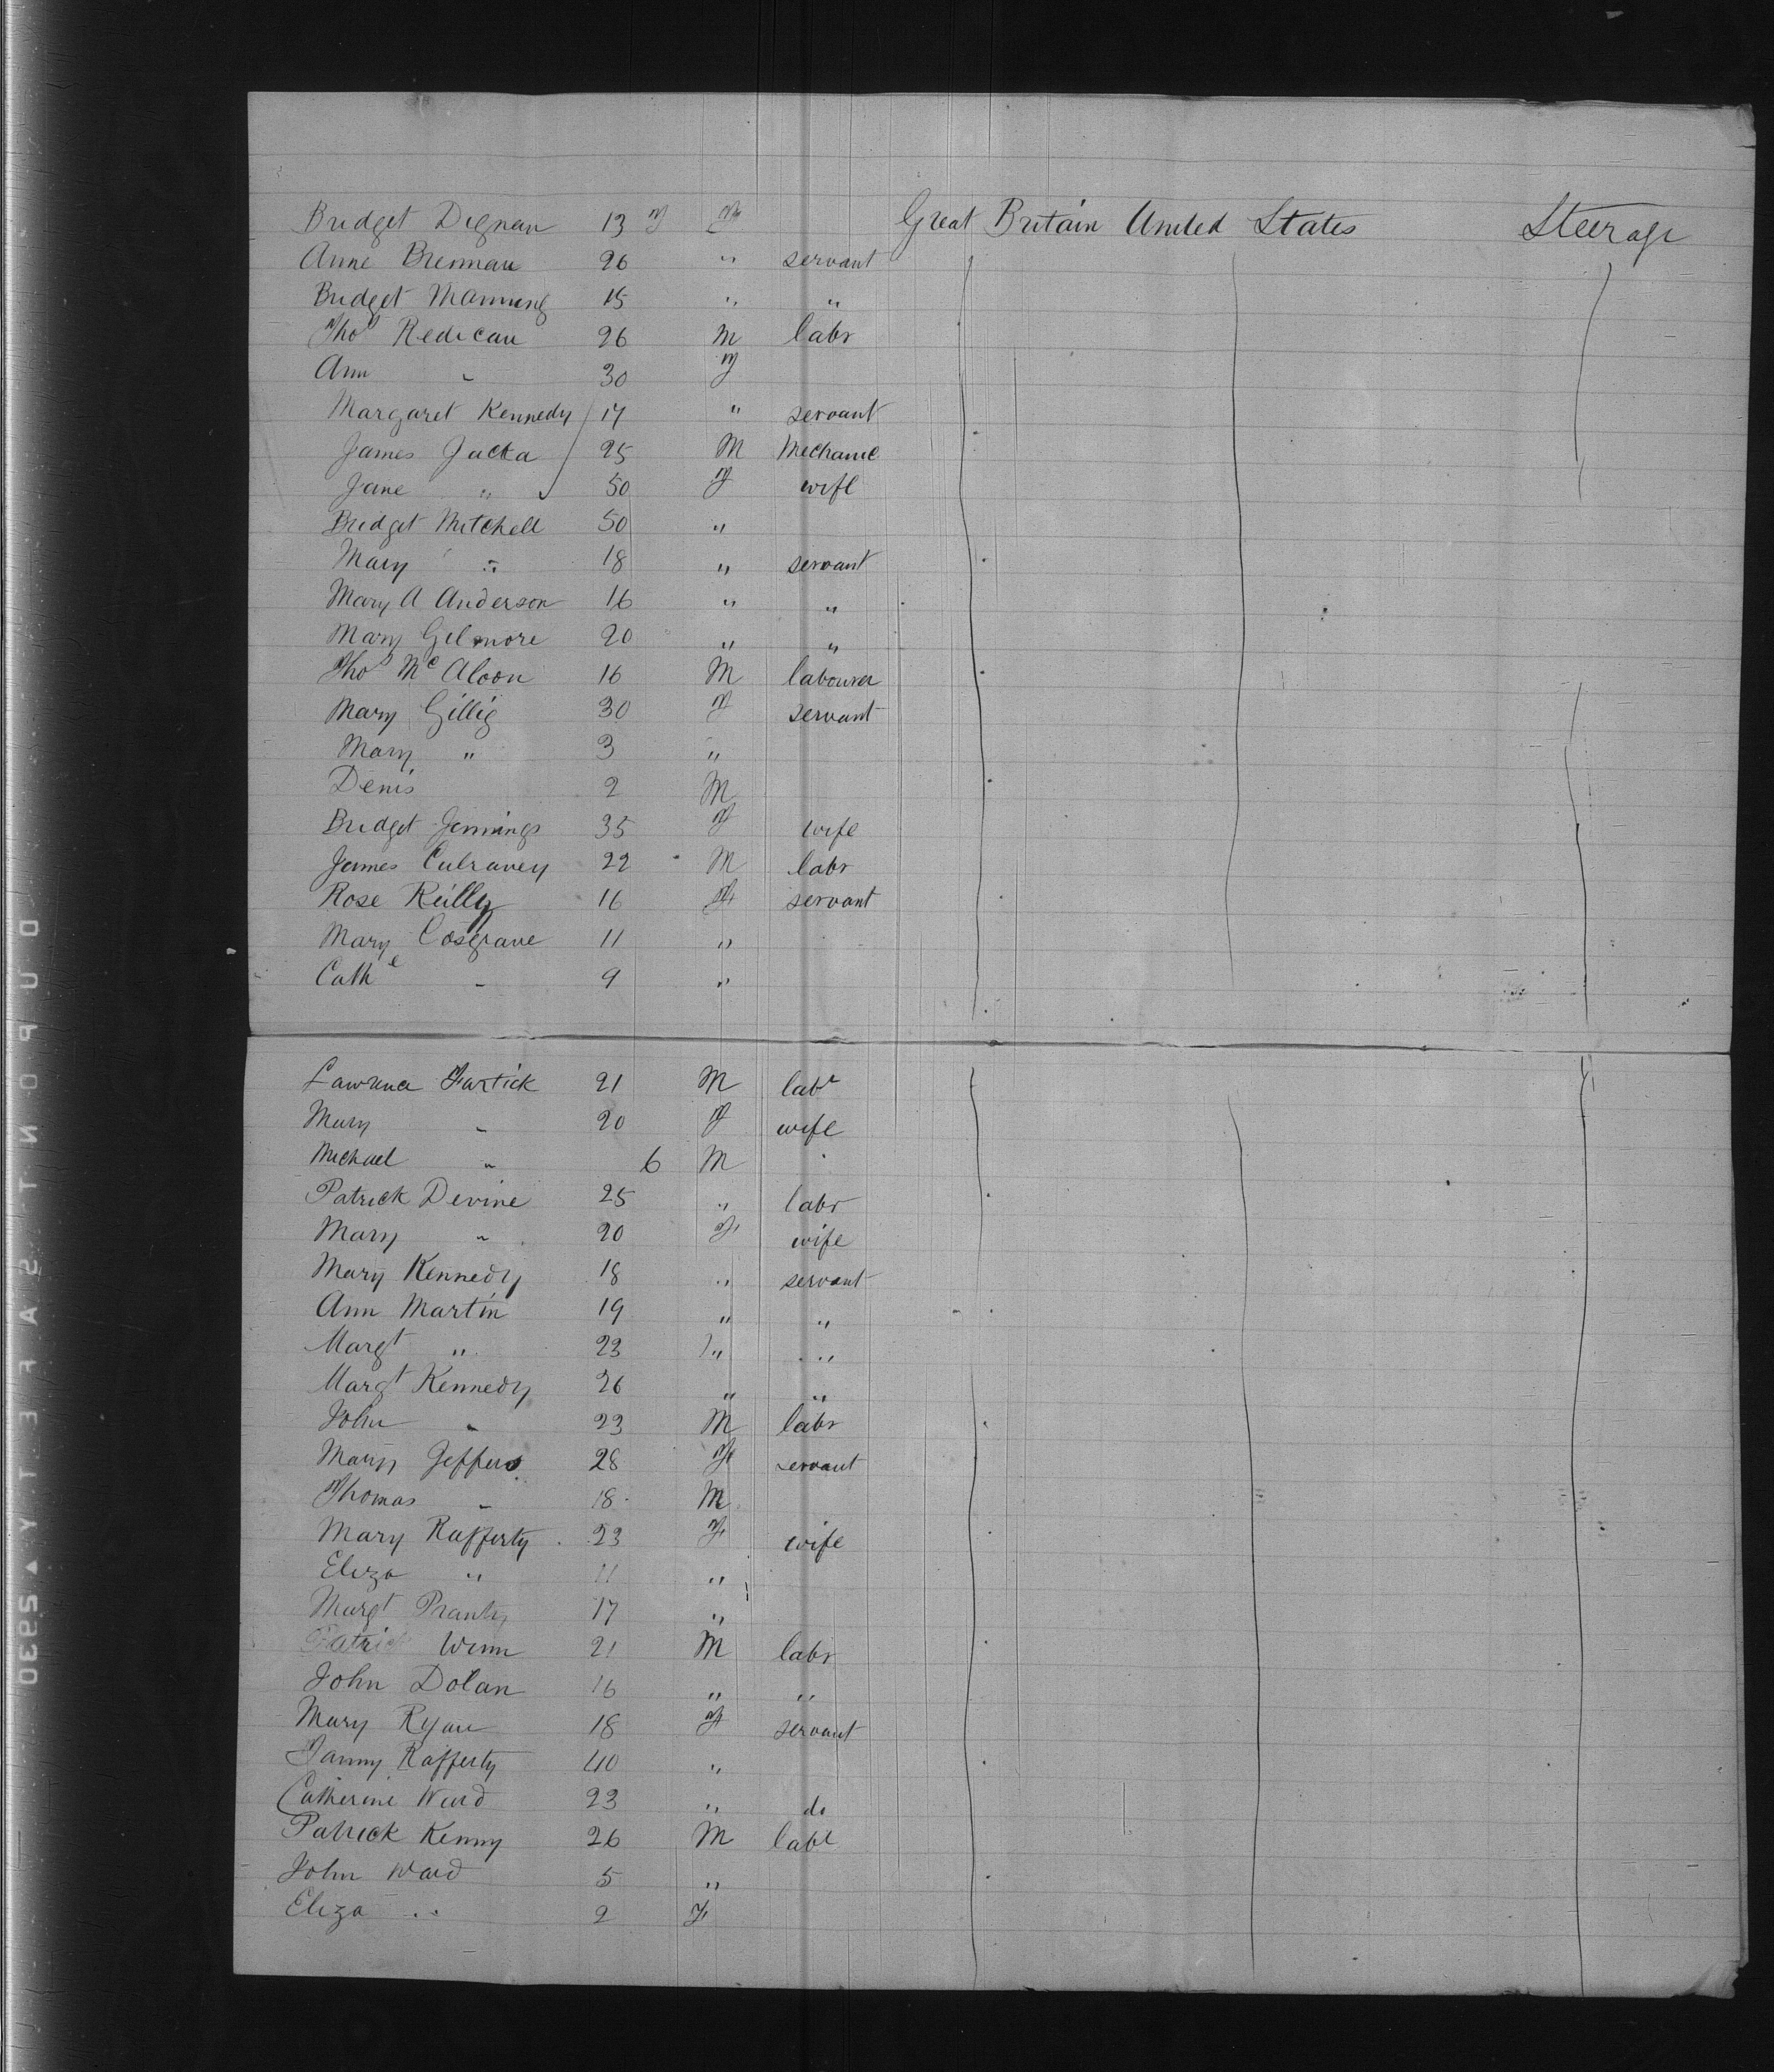 Bridget Dignan 13 F F Great Britain United States Steerage
Anne Brennan 26 " servant
Bridget Manning 15 " "
Thos Redican 26 M labr
Ann " 30 F
Margaret Kennedy 17 " servant
James Jacka 25 M Mechanic
Jane " 50 F wife
Bridget Mitchell 50 "
Mary " 18 " servant
Mary A Anderson 16 " "
Mary Gilmore 20 " "
Thos McAloon 16 M labourer
Mary Gillig 30 F servant
Mary " 3 "
Denis 2 M
Bridget Jennings 35 F wife
James Culraney 22 M labr
Rose Reilly 16 F servant
Mary Cosgrave 11 "
Cathe " 9 "
Lawrence Fartick 21 M labr
Mary " 20 F wife
Michael " 6 M
Patrick Devine 25 " labr
Mary " 20 F wife
Mary Kennedy 18 " servant
Ann Martin 19 " "
Margt " 23 " "
Margt Kennedy 26 " "
John " 23 M labr
Mary Jeffers 28 F servant
Thomas " 18 M
Mary Rafferty 23 F wife
Eliza " 11 "
Margt Pranty 17 "
Patrick Winn 21 M labr
John Dolan 16 " "
Mary Ryan 18 F servant
Fanny Rafferty 40 "
Catherine Ward 23 " do
Patrick Kenny 26 M labr
John Ward 5 "
Eliza " 2 F
DUPONT SAFETY 0395▲Y